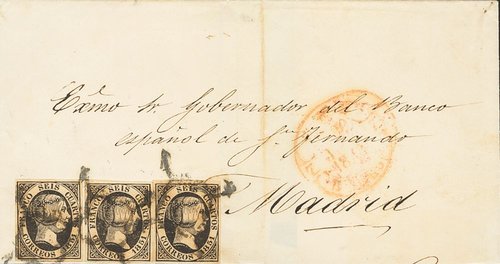 Exmo Sr. Gobernador del Banco
español de Sn. Fernando
Madrid
FRANCO SEIS CUARTOS
CORREOS 1851
FRANCO SEIS CUARTOS
CORREOS 1851
FRANCO SEIS CUARTOS
CORREOS 1851